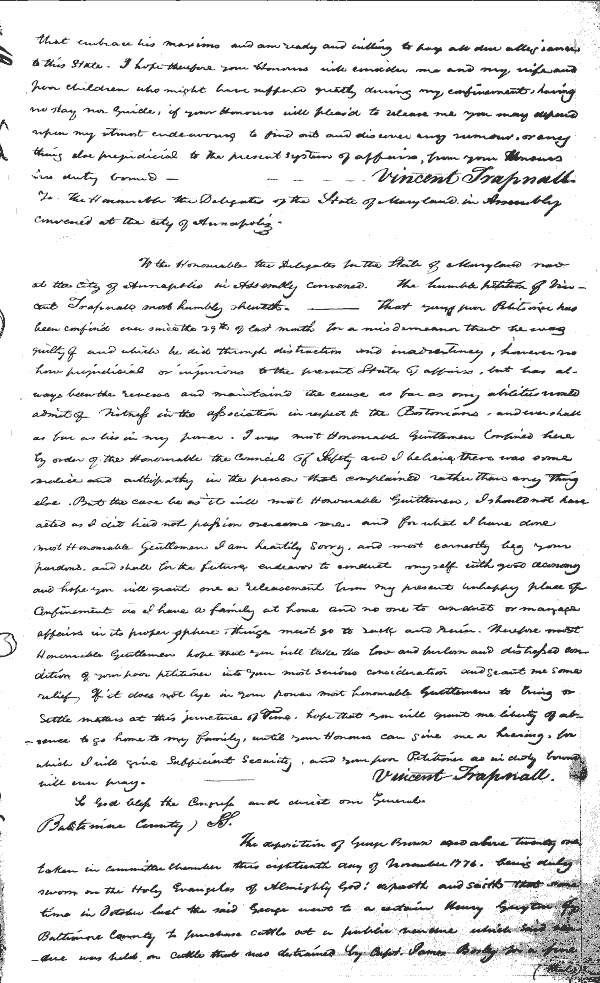 that embrace his maxims and am ready and willing to pay all due allegiance
to this State. I hope therefore your Honours will consider me and my wife and
poor children who might have suffered greatly during my confinement, having
no stay nor Guide, if your Honours will pleas'd to release me you may depend
upon my utmost endeavours to find out and discover any rumour, or any
thing else prejudicial to the present system of affairs, from your Honours
in duty bound — Vincent Trapnall.
To the Honourable the Delegates of the State of Maryland in Assembly
convened at the city of Annapolis.
To the Honourable the Delegates for the State of Maryland now
at the City of Annapolis in Assembly convened. The humble petition of Vin-
cent Trapnall most humbly sheweth. — That your poor Petitioner has
been confined ever since the 29th of last month for a misdemeanor that he was
guilty of and which he did through distraction and inadvertency, however no
how prejudicial or injurious to the present State of affairs, but has al-
ways been the reverse and maintained the cause as far as my abilities would
admit of Witness in the association in respect to the Bostonians, and ever shall
as far as lies in my power. I was most Honourable Gentlemen Confined here
by order of the Honourable the Council of Safety and I believe there was some
malice and antipathy in the person that complained rather than any thing
else. But the case be as it will most Honourable Gentlemen, I should not have
acted as I did had not passion overcome me. and for what I have done
most Honourable Gentlemen I am heartily sorry, and most earnestly beg your
pardons, and shall for the future endeavor to conduct myself with good decorum
and hope you will grant me a releasement from my present unhappy place of
Confinement as I have a family at home and no one to conduct or manage
affairs in its proper sphere, things must go to rack and Ruin. Therefore most
Honourable Gentlemen hope that you will take the low and forlorn and distressed con
dition of your poor petitioner into your most serious consideration and grant me some
relief, If it does not lye in your power most honourable Gentlemen to bring or
Settle matters at this juncture of Time. hope that you will grant me liberty of ab-
-sence to go home to my Family, until your Honours can give me a hearing, for
which I will give Sufficient Security, and your poor Petitioner as in duty bound
will ever pray. Vincent Trapnall.
So God bless the Congress and direct our Generals.
Baltimore County) Ss.
The deposition of George Brown and above twenty one
taken in committee Chamber this eighteenth day of November 1776. being duly
sworn on the Holy Evangeles of Almighty God: deposeth and saith that some
time in October last the said George went to a certain Henry
Baltimore County to purchase cattle at a public vendue which said ven
-due was held on cattle that was distrained by Capt. James Bosley for a fine